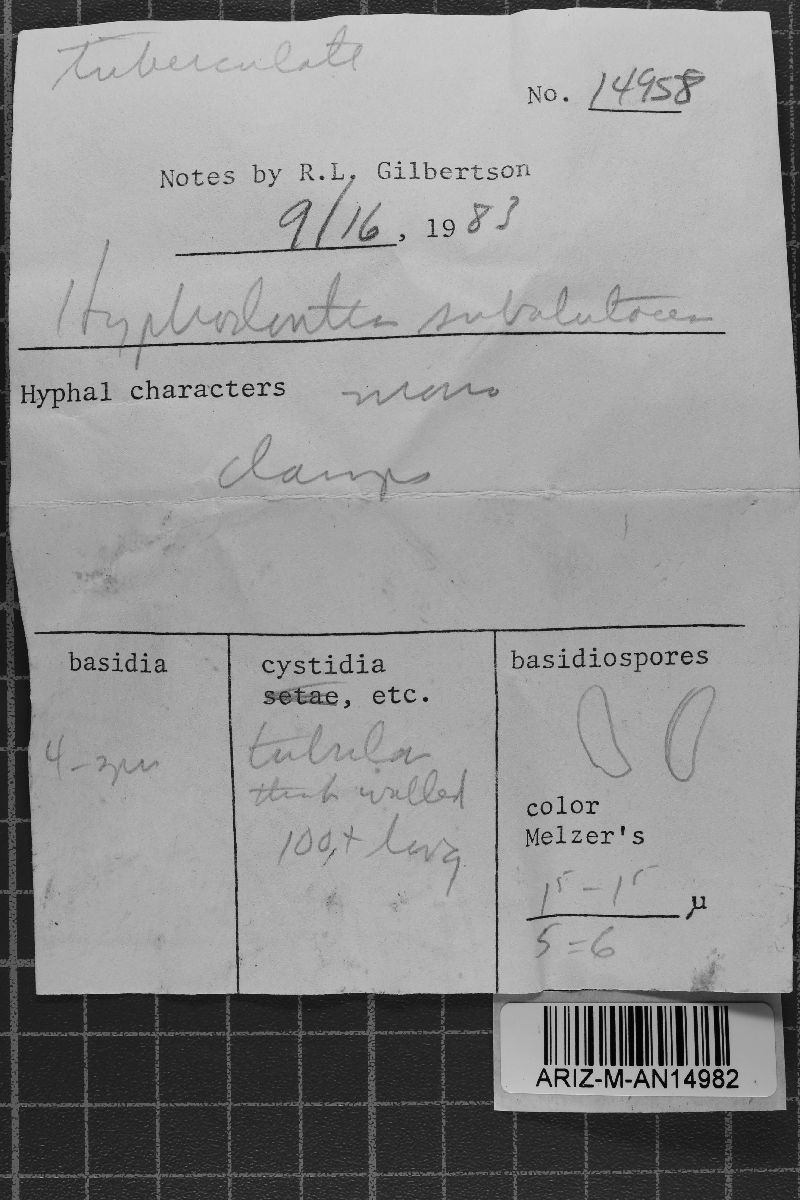 tuberculate
No. 14958
Notes by R.L. Gilbertson
9/16, 1983
Hyphodontia subalutacea
Hyphal characters mono
clamps
basidia
4-spu
cystidia
setae, etc.
tubular
thick walled
100,+ long
basidiospores
color
Melzer's
µ
5 = 6
ARIZ-M-AN14982